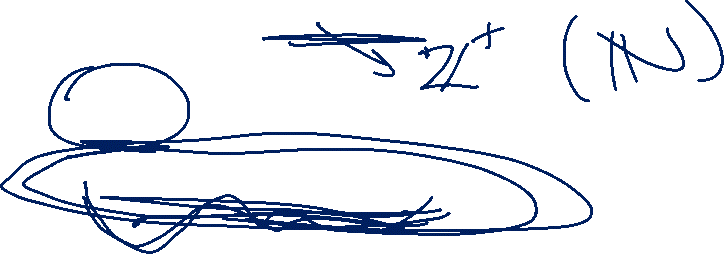 ℤ⁺ (ℕ)